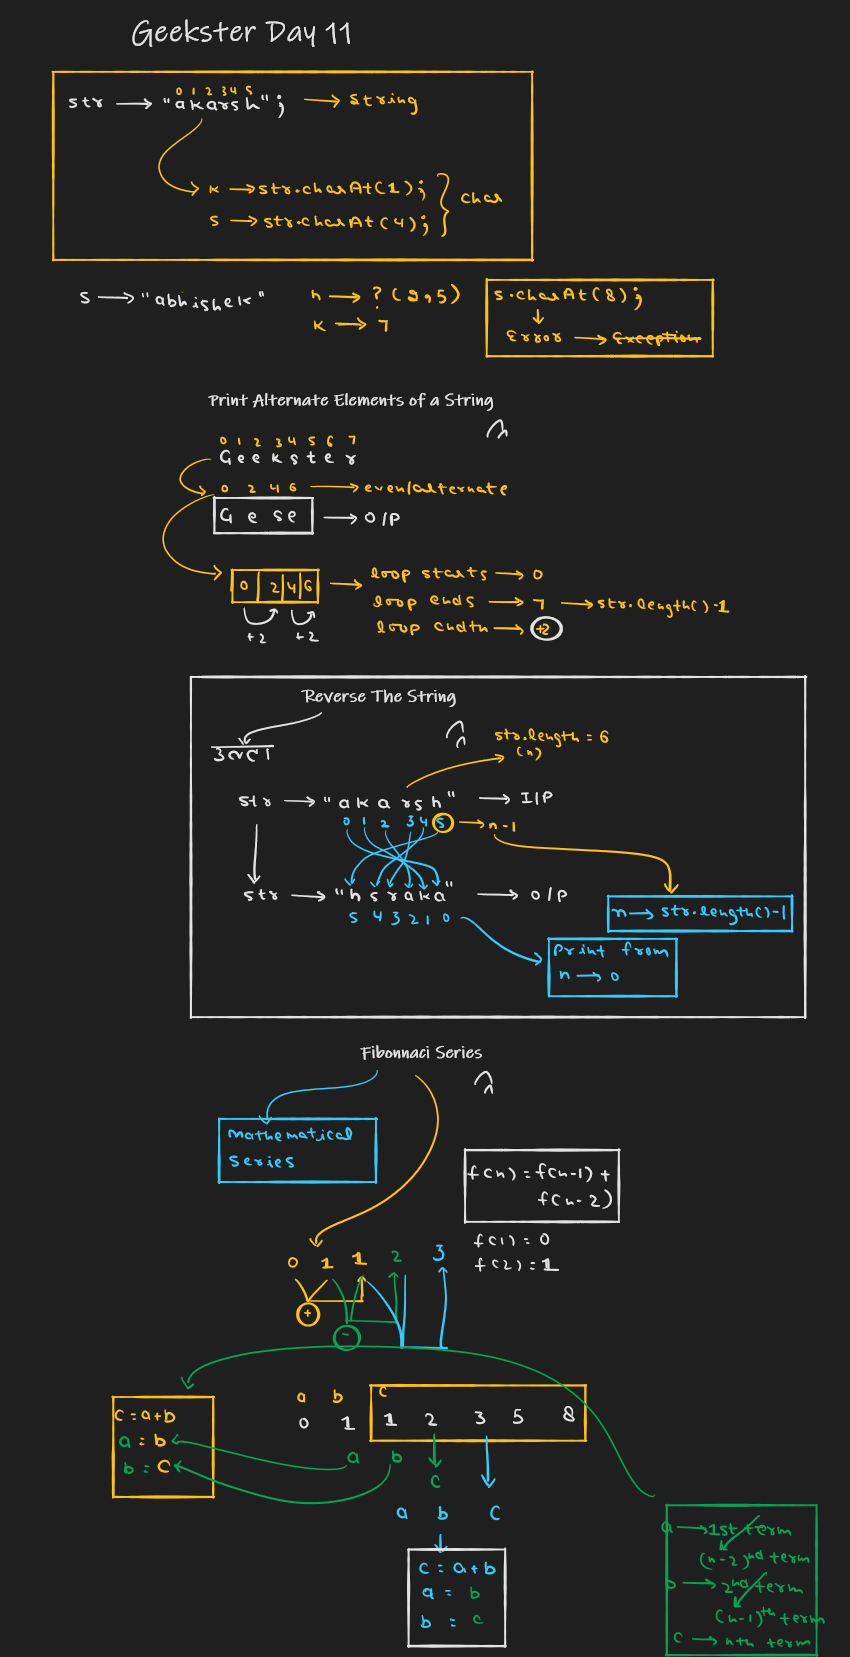 Geekster Day 11
0 1 2 3 4 5
str → "akarsh"; → string
k → str.charAt(1);
s → str.charAt(4);
char
s → "abhishek"
h → ? (2,5)
k → 7
s.charAt(8);
Error → Exception
Print Alternate Elements of a String
0 1 2 3 4 5 6 7
G e e k s t e r
0 2 4 6 → even/alternate
G e s e → O/P
0 2 4 6
+2 +2
loop starts → 0
loop ends → 7 → str.length()-1
loop cndtn → +2
Reverse The String
str.length = 6
(n)
str → "akarsh" → I/P
0 1 2 3 4 5 → n-1
str → "hsraka" → O/P
5 4 3 2 1 0
n → str.length()-1
print from
n → 0
Fibonnaci Series
mathematical
series
f(n) = f(n-1) +
f(n-2)
f(1) = 0
f(2) = 1
0 1 1 2 3
+
-
c = a+b
a = b
b = c
a b c
0 1 1 2 3 5 8
a b
c
a b c
c = a+b
a = b
b = c
a → 1st term
(n-2)nd term
b → 2nd term
(n-1)th term
c → nth term